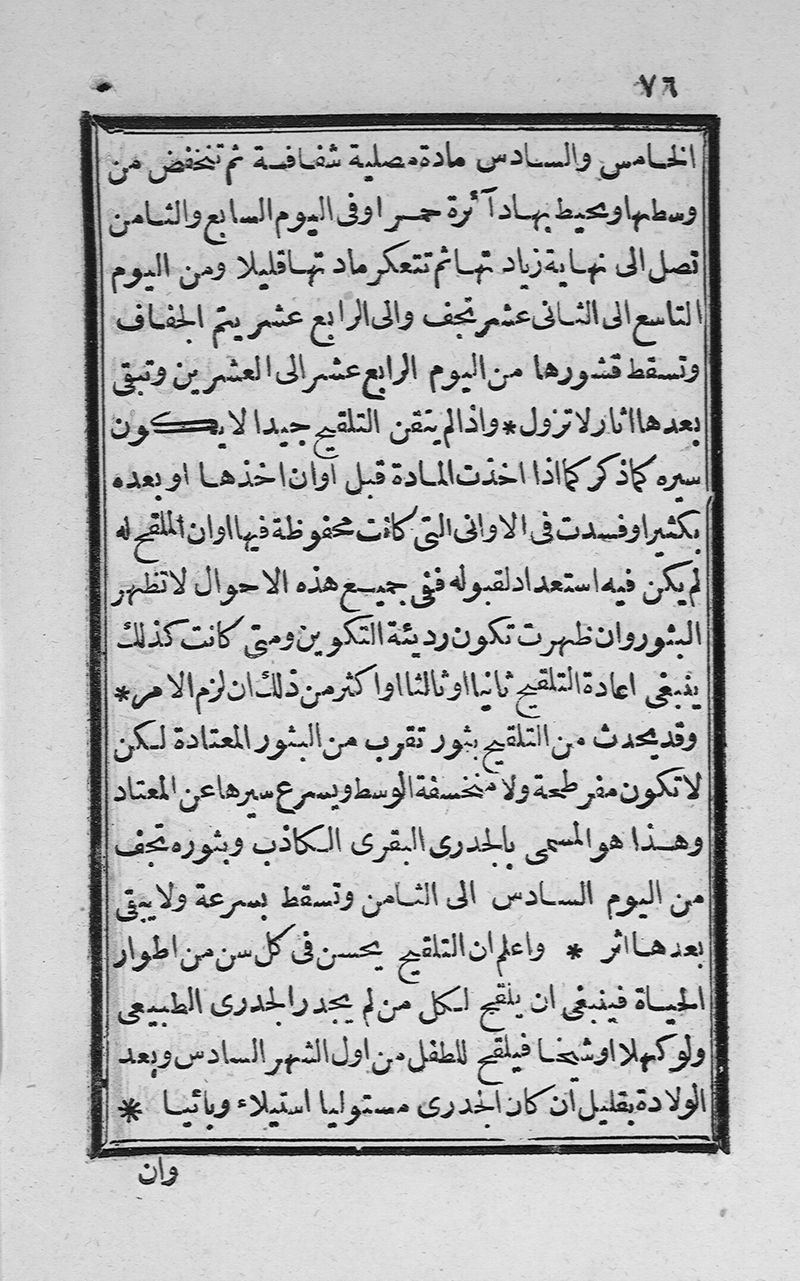 ٧٦
الخامس والسادس مادة مصلية شفافة ثم تنخفض من
وسطها ويحيط بها دآئرة حمرا وفى اليوم السابع والثامن
تصل الى نهاية زيادتها ثم تتعكر مادتها قليلا ومن اليوم
التاسع الى الثانى عشر تجف والى الرابع عشر يتم الجفاف
وتسقط قشورها من اليوم الرابع عشر الى العشرين وتبقى
بعدها اثار لا تزول * واذا لم يتقن التلقيح جيدا لا يكون
سيره كما ذكر كما اذا اخذت المادة قبل اوان اخذها او بعده
بكثير او فسدت فى الاوانى التى كانت محفوظة فيها او ان الملقح له
لم يكن فيه استعداد لقبوله ففى جميع هذه الاحوال لا تظهر
البثور وان ظهرت تكون رديئة التكوين ومتى كانت كذلك
ينبغى اعادة التلقيح ثانيا او ثالثا او اكثر من ذلك ان لزم الامر *
وقد يحدث من التلقيح بثور تقرب من البثور المعتادة لكن
لا تكون مفرطحة ولا منخسفة الوسط ويسرع سيرها عن المعتاد
وهذا هو المسمى بالجدرى البقرى الكاذب وبثوره تجف
من اليوم السادس الى الثامن وتسقط بسرعة ولا يبقى
بعدها اثر * واعلم ان التلقيح يحسن فى كل سن من اطوار
الحياة فينبغى ان يلقح لكل من لم يجدر الجدرى الطبيعى
ولو كهلا او شيخا فيلقح للطفل من اول الشهر السادس وبعد
الولادة بقليل ان كان الجدرى مستوليا استيلاء وبائيا *
وان